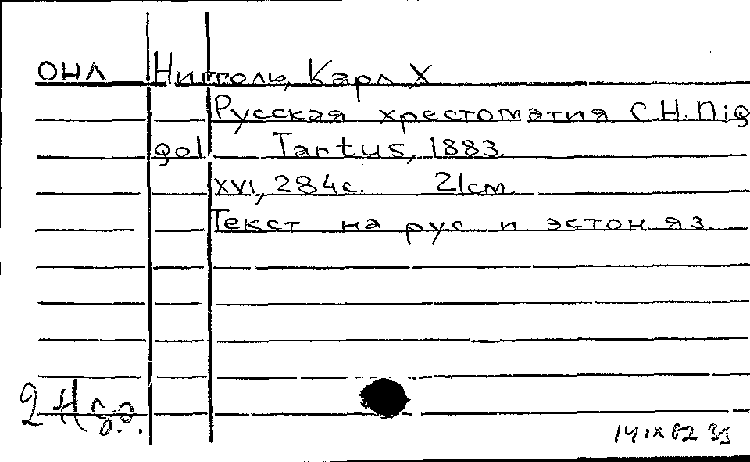 ОНЛ Ниголь, Карл Х
Русская хрестоматия C.H. Nig
gol Tartus, 1883.
XVI, 284с. 21см.
Текст на рус и эстон яз.
2